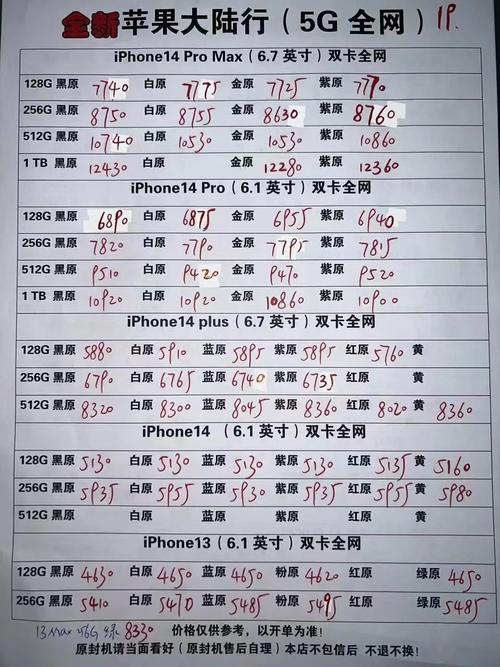 全新苹果大陆行（5G 全网） 19.
iPhone14 Pro Max（6.7 英寸）双卡全网
128G 黑原 7740 白原 7775 金原 7725 紫原 7770
256G 黑原 8750 白原 8755 金原 8630 紫原 8760
512G 黑原 10740 白原 10530 金原 10530 紫原 10860
1 TB 黑原 12430 白原 金原 12280 紫原 12360
iPhone14 Pro（6.1 英寸）双卡全网
128G 黑原 6890 白原 6875 金原 6955 紫原 6940
256G 黑原 7820 白原 7790 金原 7795 紫原 7815
512G 黑原 9510 白原 9420 金原 9470 紫原 9520
1 TB 黑原 10920 白原 10920 金原 10860 紫原 10900
iPhone14 plus（6.7 英寸）双卡全网
128G 黑原 5880 白原 5910 蓝原 5895 紫原 5895 红原 5760 黄
256G 黑原 6790 白原 6765 蓝原 6740 紫原 6735 红原 黄
512G 黑原 8320 白原 8300 蓝原 8045 紫原 8360 红原 8020 黄 8360
iPhone14 （6.1 英寸）双卡全网
128G 黑原 5130 白原 5130 蓝原 5130 紫原 5130 红原 5135 黄 5160
256G 黑原 5935 白原 5955 蓝原 5930 紫原 5935 红原 5955 黄 5980
512G 黑原 白原 蓝原 紫原 红原 黄
iPhone13（6.1 英寸）双卡全网
128G 黑原 4630 白原 4650 蓝原 4650 粉原 4620 红原 绿原 4650
256G 黑原 5410 白原 5470 蓝原 5485 粉原 5495 红原 绿原 5485
13 Max 56G 绿 8330 价格仅供参考，以开单为准！
原封机请当面看好（原封机售后自理）本店不包售后 不退不换！